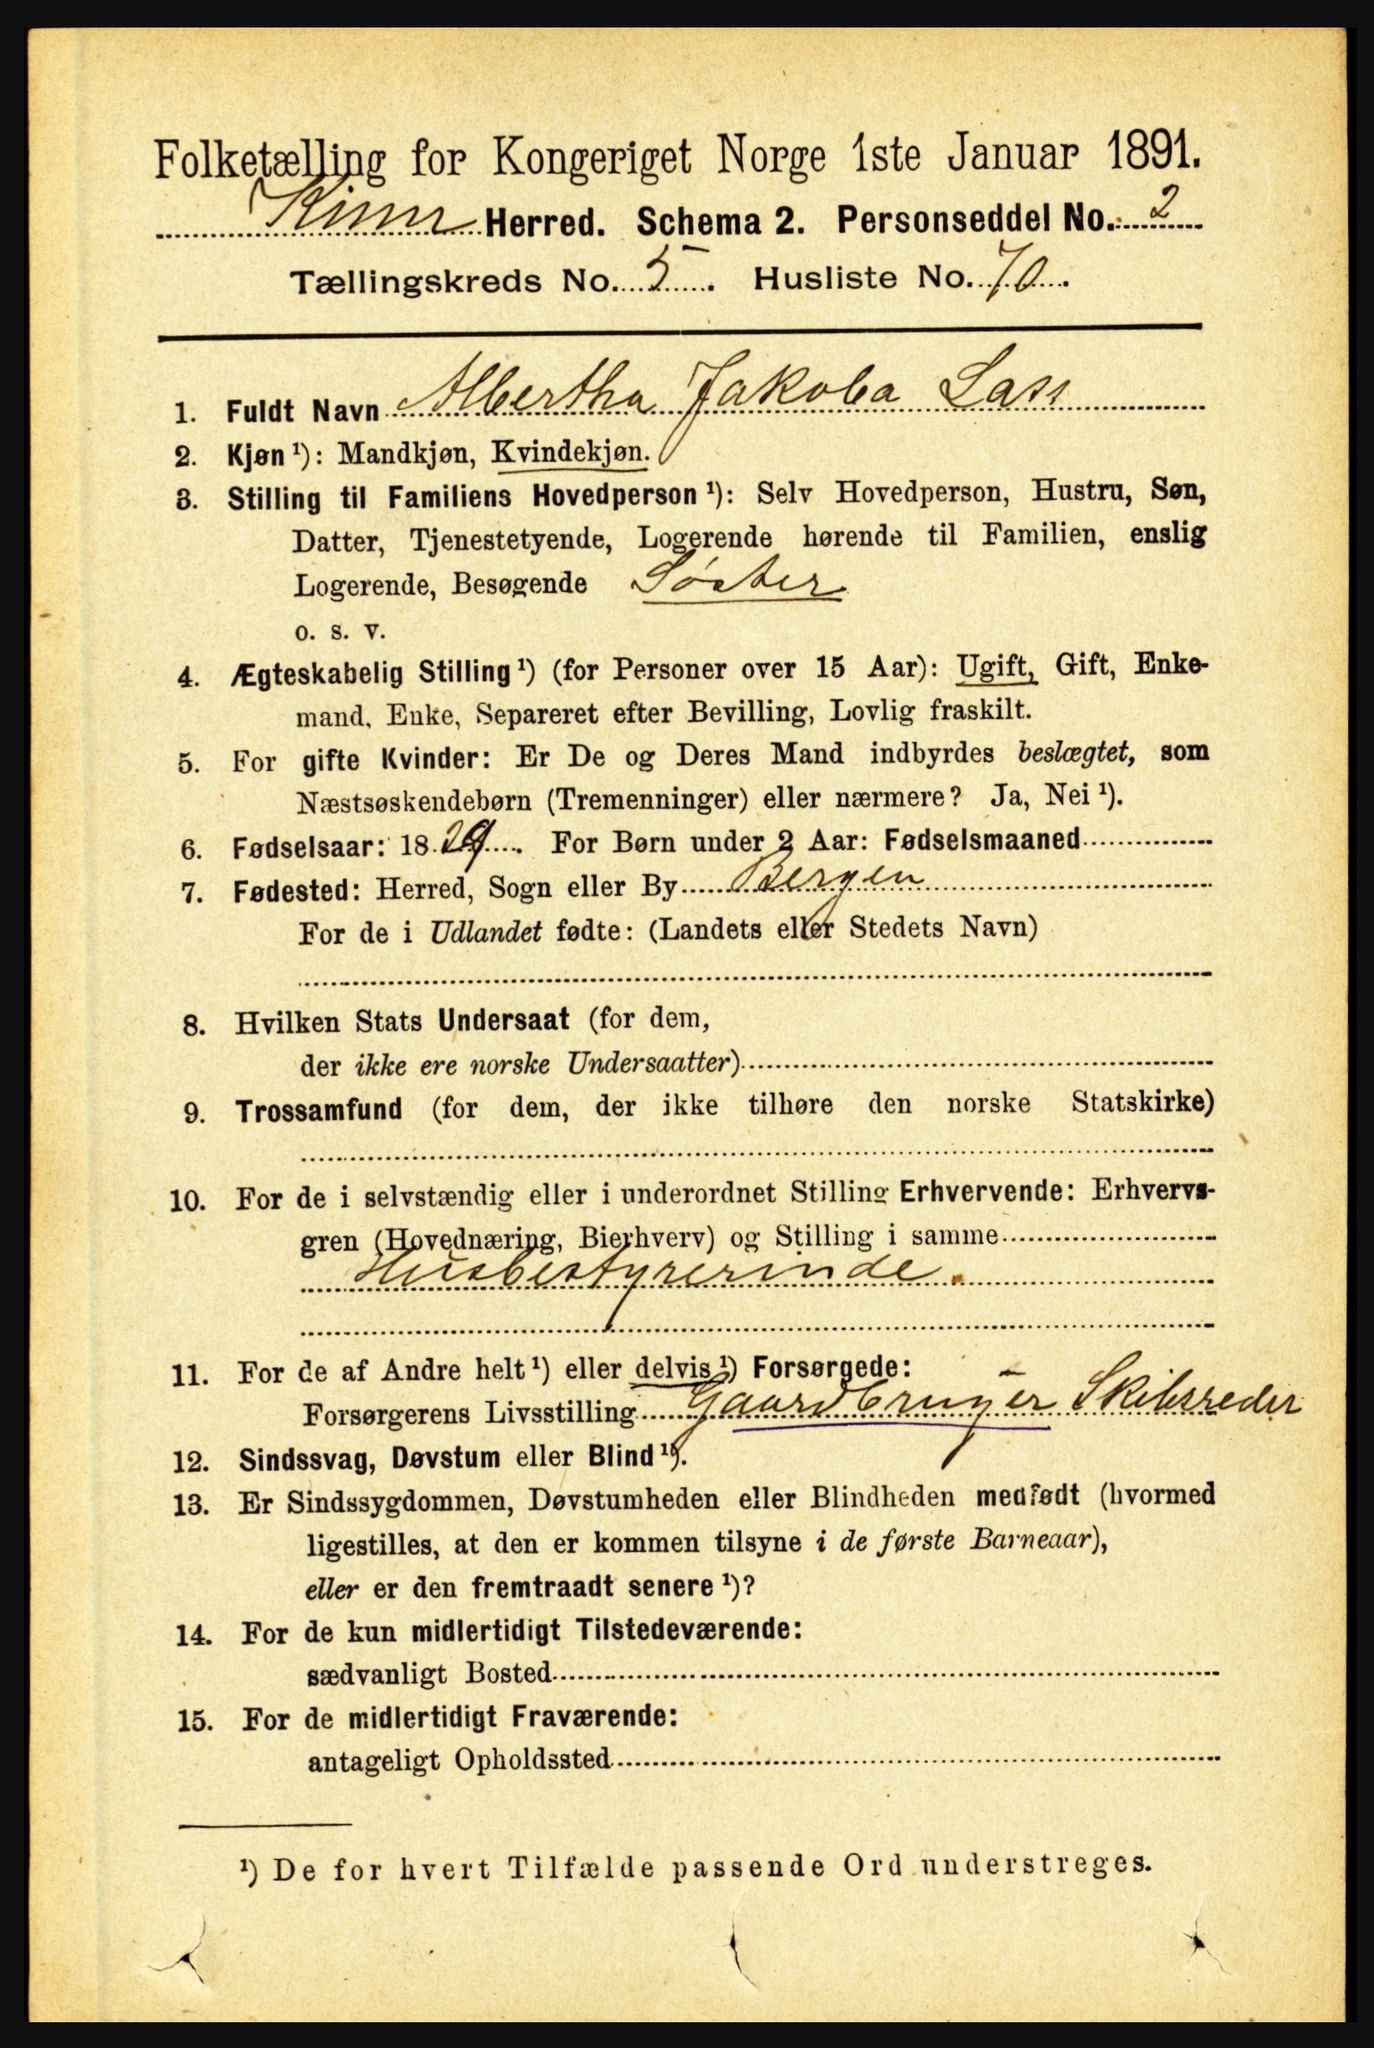 Folketælling for Kongeriget Norge 1ste Januar 1891.
Kinn Herred. Schema 2. Personseddel No. 2
Tællingskreds No. 5. Husliste No. 70.
1. Fuldt Navn Albertha Jakoba Lass
2. Kjøn ¹): Mandkjøn, Kvindekjøn.
3. Stilling til Familiens Hovedperson ¹): Selv Hovedperson, Hustru, Søn,
Datter, Tjenestetyende, Logerende hørende til Familien, enslig
Logerende, Besøgende Søster
o. s. v.
4. Ægteskabelig Stilling ¹) (for Personer over 15 Aar): Ugift, Gift, Enke-
mand, Enke, Separeret efter Bevilling, Lovlig fraskilt.
5. For gifte Kvinder: Er De og Deres Mand indbyrdes beslægtet, som
Næstsøskendebørn (Tremenninger) eller nærmere? Ja, Nei ¹).
6. Fødselsaar: 1829. For Børn under 2 Aar: Fødselsmaaned
7. Fødested: Herred, Sogn eller By Bergen
For de i Udlandet fødte: (Landets eller Stedets Navn)
8. Hvilken Stats Undersaat (for dem,
der ikke ere norske Undersaatter)
9. Trossamfund (for dem, der ikke tilhøre den norske Statskirke)
10. For de i selvstændig eller i underordnet Stilling Erhvervende: Erhvervs-
gren (Hovednæring, Bierhverv) og Stilling i samme
Husbestyrerinde.
11. For de af Andre helt ¹) eller delvis ¹) Forsørgede:
Forsørgerens Livsstilling Gaardbruger Skibsreder
12. Sindssvag, Døvstum eller Blind ¹).
13. Er Sindssygdommen, Døvstumheden eller Blindheden medfødt (hvormed
ligestilles, at den er kommen tilsyne i de første Barneaar),
eller er den fremtraadt senere ¹)?
14. For de kun midlertidigt Tilstedeværende:
sædvanligt Bosted
15. For de midlertidigt Fraværende:
antageligt Opholdssted
¹) De for hvert Tilfælde passende Ord understreges.